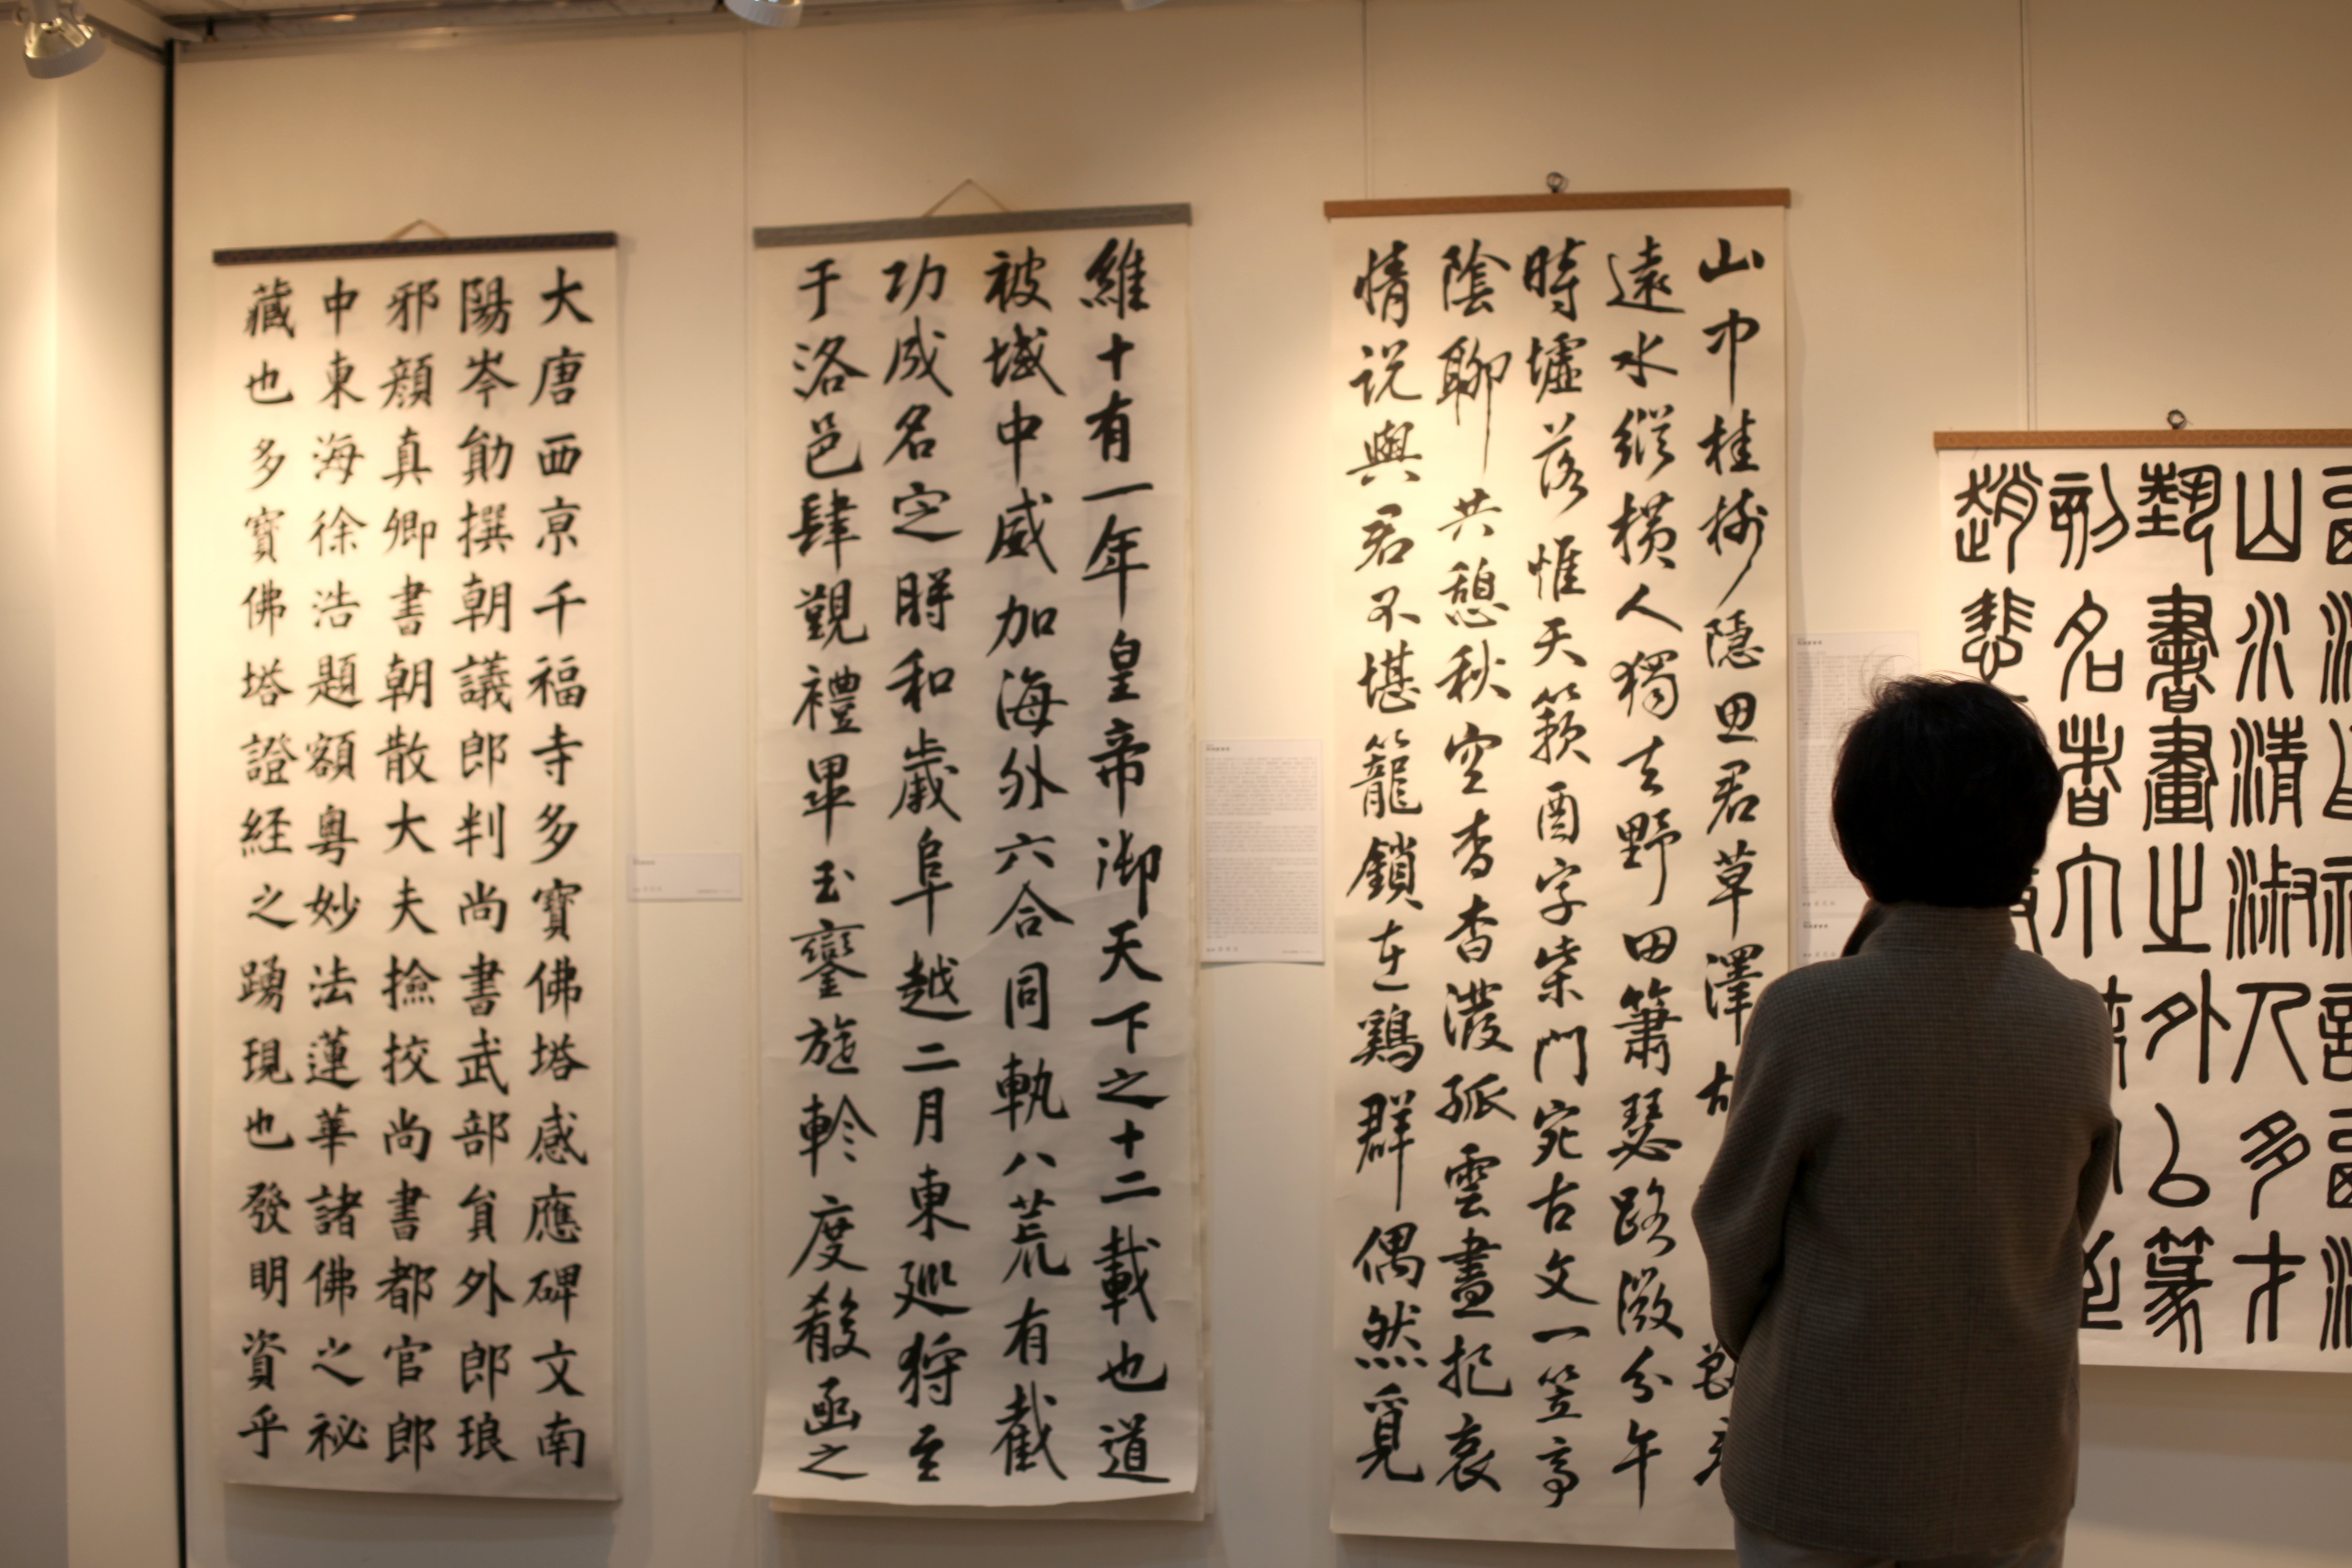 大唐西京千福寺多寶佛塔感應碑文南
陽岑勛撰朝議郎判尚書武部員外郎琅
邪顏真卿書朝散大夫撿挍尚書都官郎
中東海徐浩題額粵妙法蓮華諸佛之祕
藏也多寶佛塔證經之踴現也發明資乎
維十有一年皇帝御天下之十二載也道
被域中威加海外六合同軌八荒有截
功成名定時和歲阜越二月東巡狩至
于洛邑肆覲禮畢玉鑾旋軫度殽函之
山巾桂樹隱思君草澤
遠水縱橫人獨去野田蕭瑟路微分午
時墟落惟天籟酉字柴門宛古文一笠亭
陰聊共憩秋空杳杳澹孤雲畫把哀
情説與君不堪籠鎖在鷄群偶然覓
山水清淑人多才
藝書畫之外公篆
刻名著六
趙悲